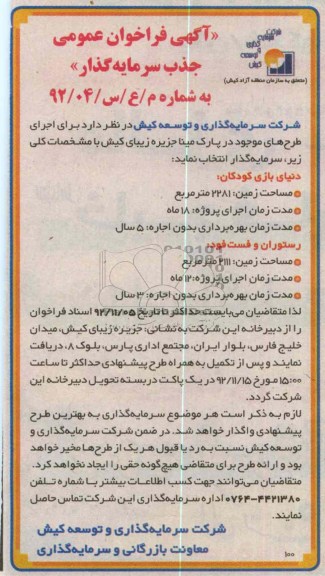 «آگهی فراخوان عمومی
جذب سرمایه‌گذار»
به شماره م/ع/س/۹۲/۰۴
شرکت
سرمایه
گذاری
و توسعه
کیش
(متعلق به سازمان منطقه آزاد کیش)
شرکت سرمایه‌گذاری و توسعه کیش در نظر دارد برای اجرای
طرح‌های موجود در پارک مینا جزیره زیبای کیش با مشخصات کلی
زیر، سرمایه‌گذار انتخاب نماید:
دنیای بازی کودکان:
مساحت زمین: ۲۲۸۱ مترمربع
مدت زمان اجرای پروژه: ۱۸ ماه
مدت زمان بهره‌برداری بدون اجاره: ۵ سال
رستوران و فست فود:
مساحت زمین: ۲۱۱۱ مترمربع
مدت زمان اجرای پروژه: ۱۲ ماه
مدت زمان بهره‌برداری بدون اجاره: ۳ سال
لذا متقاضیان می‌بایست حداکثر تا تاریخ ۹۲/۱۱/۰۵ اسناد فراخوان
را از دبیرخانه این شرکت به نشانی: جزیره زیبای کیش، میدان
خلیج فارس، بلوار ایران، مجتمع اداری پارس، بلوک ۸، دریافت
نمایند و پس از تکمیل به همراه طرح پیشنهادی حداکثر تا ساعت
۱۵:۰۰ مورخ ۹۲/۱۱/۱۵ در یک پاکت دربسته تحویل دبیرخانه این
شرکت گردد.
لازم به ذکر است هر موضوع سرمایه‌گذاری به بهترین طرح
پیشنهادی واگذار خواهد شد. در ضمن شرکت سرمایه‌گذاری و
توسعه کیش نسبت به رد یا قبول هر یک از طرح‌ها مخیر خواهد
بود و ارائه طرح برای متقاضی هیچ‌گونه حقی را ایجاد نخواهد کرد.
متقاضیان می‌توانند جهت کسب اطلاعات بیشتر با شماره تلفن
۰۷۶۴-۴۴۲۱۳۸۰ اداره سرمایه‌گذاری این شرکت تماس حاصل
نمایند.
شرکت سرمایه‌گذاری و توسعه کیش
معاونت بازرگانی و سرمایه‌گذاری
۱۰۰